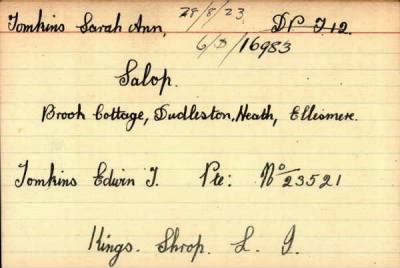 Tomkins Sarah Ann, 28/8/23 DP J 12.
6/D/16983
Salop.
Brook Cottage, Dudleston, Heath, Ellesmere.
Tomkins Edwin J. Pte: No 23521
Kings. Shrop. L. I.